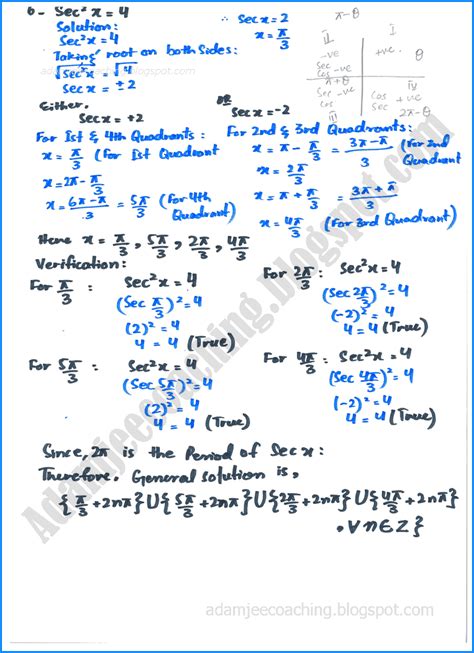 6- Sec²x = 4
Solution:
Sec²x = 4
Taking root on both Sides:
adamjeecoaching.blogspot.com
√Sec²x = √4
Sec x = ±2
∴ Sec x = 2
x = π/3
π-θ
II
I
-ve
+ve.
θ
Sec -ve
cos
π+θ
IV
Sec -ve
cos
cos +ve
Sec
III
2π-θ
Either.
OR
Sec x = +2
Sec x = -2
For Ist & 4th Quadrants:
x = π/3 (For Ist Quadrant
x = 2π - π/3
x = 6π - π/3 = 5π/3 (For 4th Quadrant)
For 2nd & 3rd Quadrants:
x = π - π/3 = 3π-π/3 (For 2nd Quadrant
x = 2π/3
x = π + π/3 = 3π+π/3
x = 4π/3 (For 3rd Quadrant)
Here x = π/3, 5π/3, 2π/3, 4π/3
Verification:
For π/3 : Sec²x = 4
(Sec π/3)² = 4
(2)² = 4
4 = 4 (True)
For 2π/3 : Sec²x = 4
(Sec 2π/3)² = 4
(-2)² = 4
4 = 4 (True)
For 5π/3 : Sec²x = 4
(Sec 5π/3)² = 4
(2)² = 4
4 = 4 (True)
For 4π/3 : Sec²x = 4
(Sec 4π/3)² = 4
(-2)² = 4
4 = 4 (True)
Since, 2π is the Period of Sec x:
Therefore. General Solution is,
{π/3 + 2nπ} U {5π/3 + 2nπ} U {2π/3 + 2nπ} U {4π/3 + 2nπ}
. ∀ n ∈ Z}
Adamjeecoaching.blogspot.com
adamjeecoaching.blogspot.com